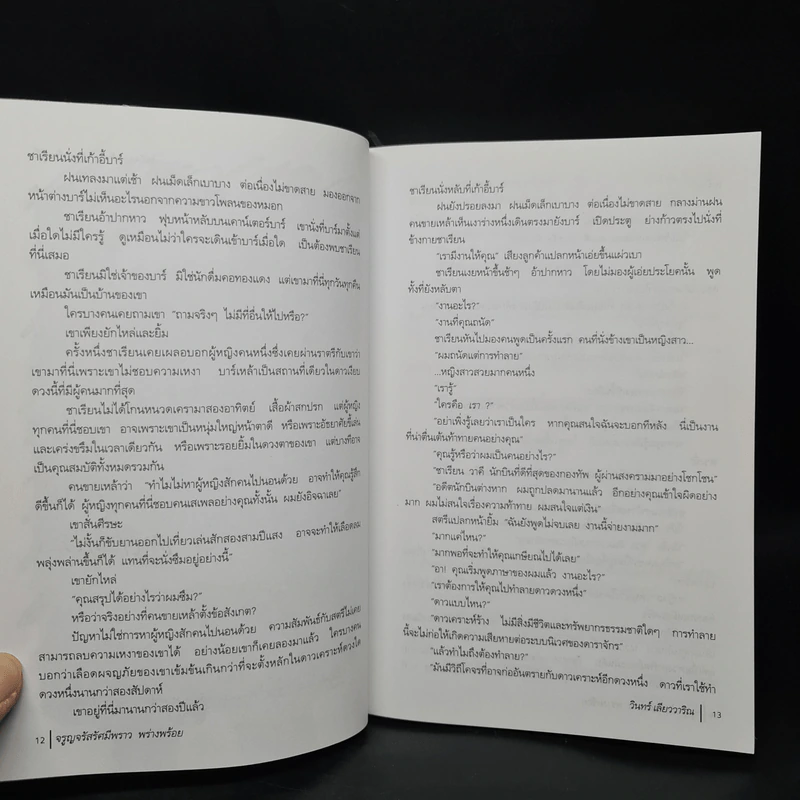 ชาเรียนนั่งที่เก้าอี้บาร์
ฝนเทลงมาแต่เช้า ฝนเม็ดเล็กเบาบาง ต่อเนื่องไม่ขาดสาย มองออกจาก
หน้าต่างบาร์ไม่เห็นอะไรนอกจากความขาวโพลนของหมอก
ชาเรียนอ้าปากหาว ฟุบหน้าหลับบนเคาน์เตอร์บาร์ เขานั่งที่บาร์มาตั้งแต่
เมื่อใดไม่มีใครรู้ ดูเหมือนไม่ว่าใครจะเดินเข้าบาร์เมื่อใด เป็นต้องพบชาเรียน
ที่นี่เสมอ
ชาเรียนมิใช่เจ้าของบาร์ มิใช่นักดื่มคอทองแดง แต่เขามาที่นี่ทุกวันทุกคืน
เหมือนมันเป็นบ้านของเขา
ใครบางคนเคยถามเขา “ถามจริงๆ ไม่มีที่อื่นให้ไปหรือ?”
เขาเพียงยักไหล่และยิ้ม
ครั้งหนึ่งชาเรียนเคยเผลอบอกผู้หญิงคนหนึ่งซึ่งเคยผ่านราตรีกับเขาว่า
เขามาที่นี่เพราะเขาไม่ชอบความเหงา บาร์เหล้าเป็นสถานที่เดียวในดาวเงียบ
ดวงนี้ที่มีผู้คนมากที่สุด
ชาเรียนไม่ได้โกนหนวดเครามาสองอาทิตย์ เสื้อผ้าสกปรก แต่ผู้หญิง
ทุกคนที่นี่ชอบเขา อาจเพราะเขาเป็นหนุ่มใหญ่หน้าตาดี หรือเพราะอัธยาศัยขี้เล่น
และเคร่งขรึมในเวลาเดียวกัน หรือเพราะรอยยิ้มในดวงตาของเขา แต่บางทีอาจ
เป็นคุณสมบัติทั้งหมดรวมกัน
คนขายเหล้าว่า “ทำไมไม่หาผู้หญิงสักคนไปนอนด้วย อาจทำให้คุณรู้สึก
ดีขึ้นก็ได้ ผู้หญิงทุกคนที่นี่ชอบคนเสเพลอย่างคุณทั้งนั้น ผมยังอิจฉาเลย”
เขาสั่นศีรษะ
“ไม่งั้นก็ขับยานออกไปเที่ยวเล่นสักสองสามปีแสง อาจจะทำให้เลือดลม
พลุ่งพล่านขึ้นก็ได้ แทนที่จะนั่งซึมอยู่อย่างนี้”
เขายักไหล่
“คุณสรุปได้อย่างไรว่าผมซึม?”
หรือว่าจริงอย่างที่คนขายเหล้าตั้งข้อสังเกต?
ปัญหาไม่ใช่การหาผู้หญิงสักคนไปนอนด้วย ความสัมพันธ์กับสตรีไม่เคย
สามารถลบความเหงาของเขาได้ อย่างน้อยเขาก็เคยลองมาแล้ว ใครบางคน
บอกว่าเลือดผจญภัยของเขาเข้มข้นเกินกว่าที่จะตั้งหลักในดาวเคราะห์ดวงใด
ดวงหนึ่งนานกว่าสองสัปดาห์
เขาอยู่ที่นี่มานานกว่าสองปีแล้ว
12 จรูญจรัสรัศมีพราว พร่างพร้อย
ชาเรียนนั่งหลับที่เก้าอี้บาร์
ฝนยังปรอยลงมา ฝนเม็ดเล็กเบาบาง ต่อเนื่องไม่ขาดสาย กลางม่านฝน
คนขายเหล้าเห็นเงาร่างหนึ่งเดินตรงมายังบาร์ เปิดประตู ย่างก้าวตรงไปนั่งที่
ข้างกายชาเรียน
“เรามีงานให้คุณ” เสียงลูกค้าแปลกหน้าเอ่ยขึ้นแผ่วเบา
ชาเรียนเงยหน้าขึ้นช้าๆ อ้าปากหาว โดยไม่มองผู้เอ่ยประโยคนั้น พูด
ทั้งที่ยังหลับตา
“งานอะไร?”
“งานที่คุณถนัด”
ชาเรียนหันไปมองคนพูดเป็นครั้งแรก คนที่นั่งข้างเขาเป็นหญิงสาว...
“ผมถนัดแต่การทำลาย”
...หญิงสาวสวยมากคนหนึ่ง
“เรารู้”
“ใครคือ เรา ?”
“อย่าเพิ่งรู้เลยว่าเราเป็นใคร หากคุณสนใจฉันจะบอกทีหลัง นี่เป็นงาน
ที่น่าตื่นเต้นท้าทายคนอย่างคุณ”
“คุณรู้หรือว่าผมเป็นคนอย่างไร?”
“ชาเรียน วาคี นักบินที่ดีที่สุดของกองทัพ ผู้ผ่านสงครามมาอย่างโชกโชน”
“อดีตนักบินต่างหาก ผมถูกปลดมานานแล้ว อีกอย่างคุณเข้าใจผิดอย่าง
มาก ผมไม่สนใจเรื่องความท้าทาย ผมสนใจแต่เงิน”
สตรีแปลกหน้ายิ้ม “ฉันยังพูดไม่จบเลย งานนี้จ่ายงามมาก”
“มากแค่ไหน?”
“มากพอที่จะทำให้คุณเกษียณไปได้เลย”
“อา! คุณเริ่มพูดภาษาของผมแล้ว งานอะไร?”
“เราต้องการให้คุณไปทำลายดาวดวงหนึ่ง”
“ดาวแบบไหน?”
“ดาวเคราะห์ร้าง ไม่มีสิ่งมีชีวิตและทรัพยากรธรรมชาติใดๆ การทำลาย
นี้จะไม่ก่อให้เกิดความเสียหายต่อระบบนิเวศของดาราจักร”
“แล้วทำไมถึงต้องทำลาย?”
“มันมีวิถีโคจรที่อาจก่ออันตรายกับดาวเคราะห์อีกดวงหนึ่ง ดาวที่เราใช้ทำ
วินทร์ เลียววาริณ 13